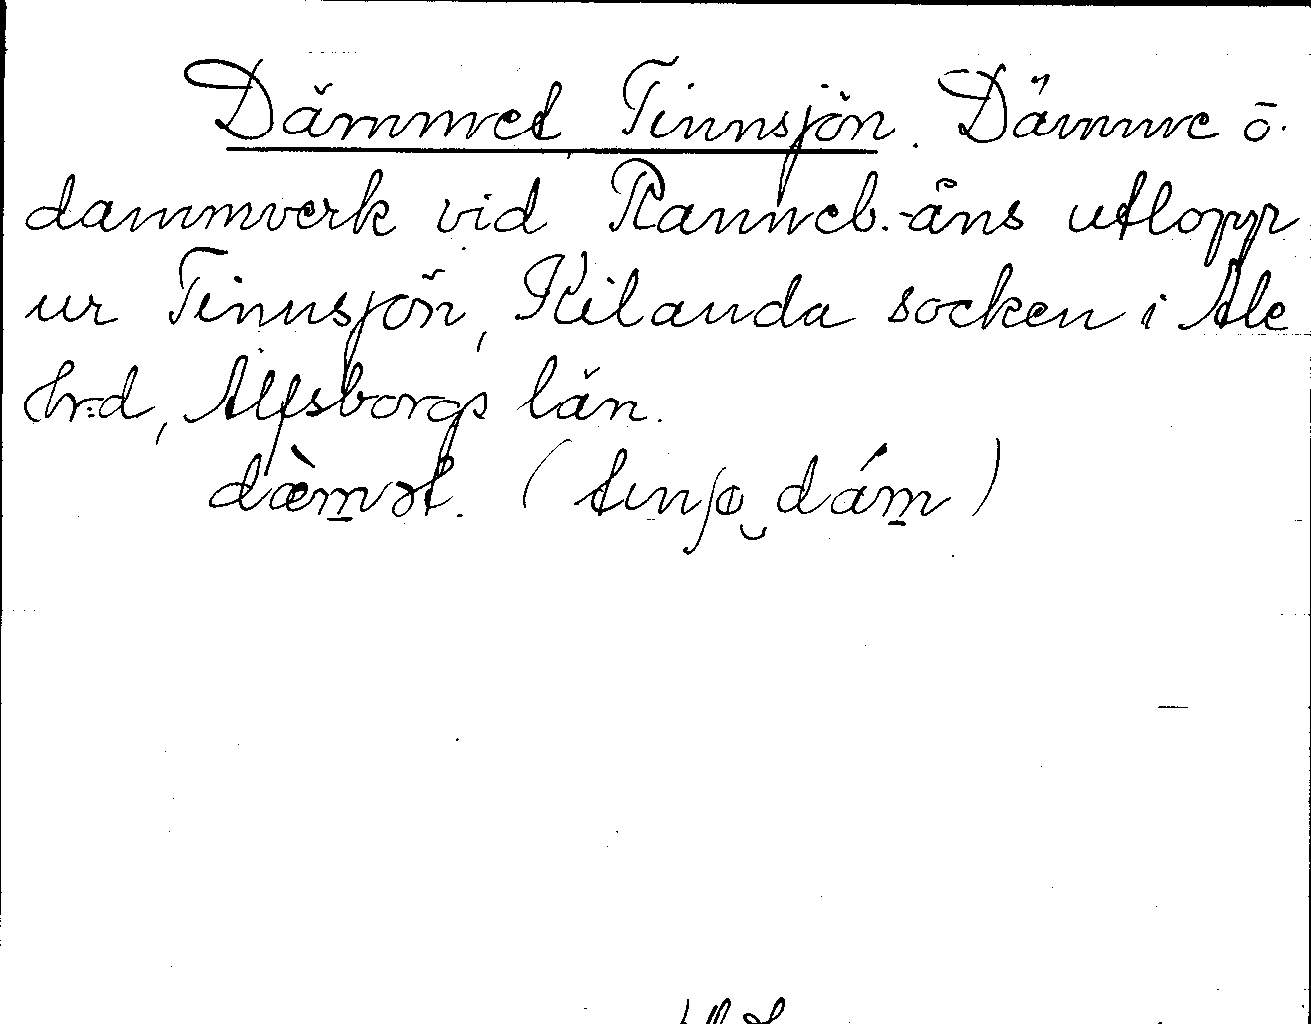 Dämmet Tinnsjön. Dämme o.
dammverk vid Ranneb.-åns utlopp
ur Tinnsjön, Kilanda socken i Ale
hrd, Älfsborgs län.
dæ̀m̲ət. (tinʃo‿dám̲)